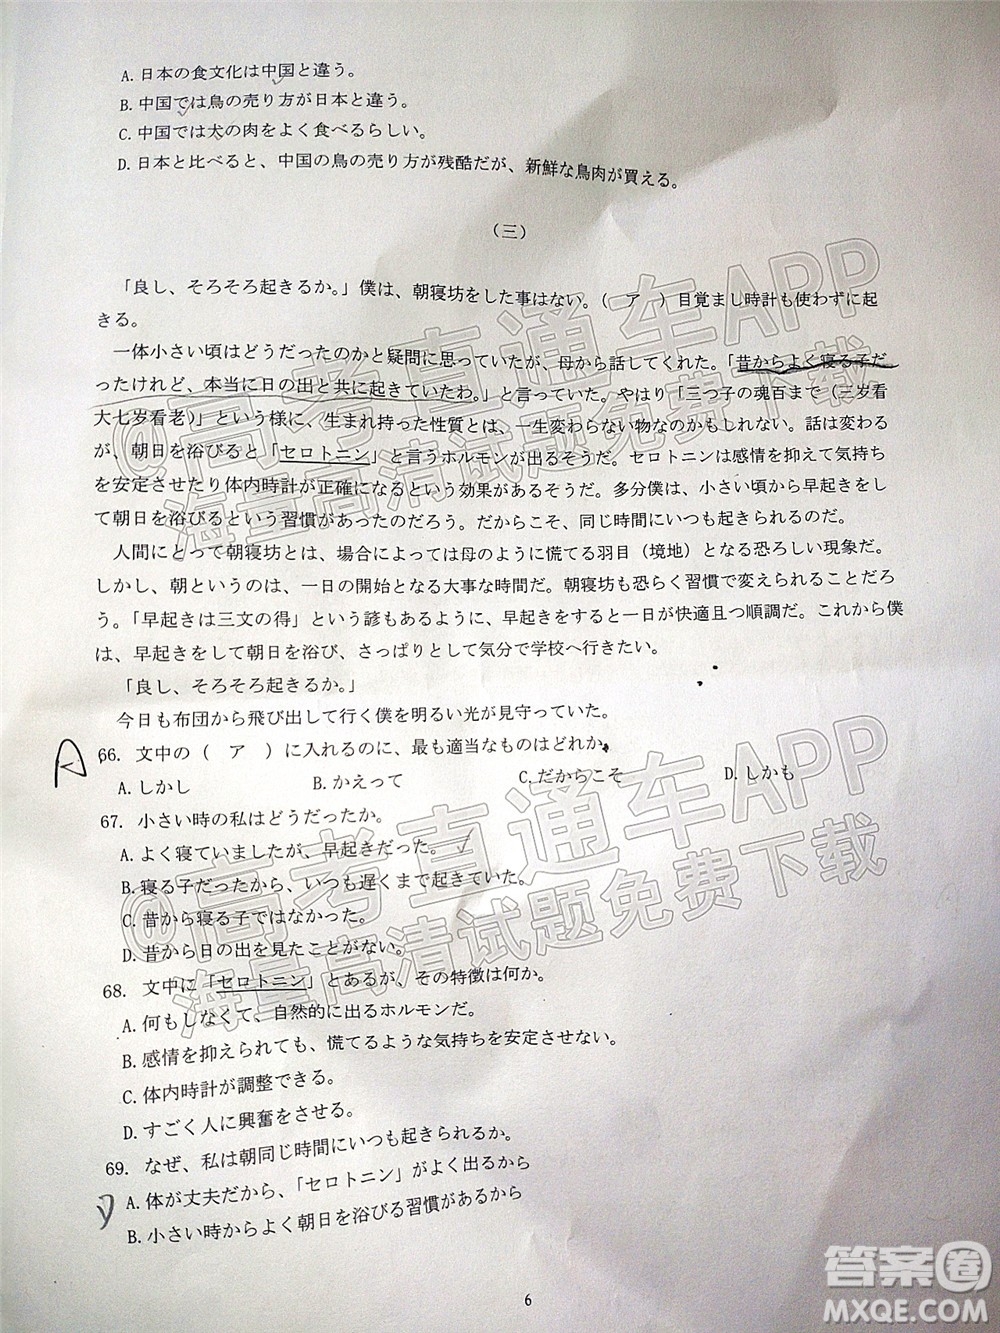 A. 日本の食文化は中国と違う。
B. 中国では鳥の売り方が日本と違う。
C. 中国では犬の肉をよく食べるらしい。
D. 日本と比べると、中国の鳥の売り方が残酷だが、新鮮な鳥肉が買える。
（三）
「良し、そろそろ起きるか。」僕は、朝寝坊をした事はない。（ ア ）目覚まし時計も使わずに起
きる。
一体小さい頃はどうだったのかと疑問に思っていたが、母から話してくれた。「昔からよく寝る子だ
ったけれど、本当に日の出と共に起きていたわ。」と言っていた。やはり「三つ子の魂百まで（三岁看
大七岁看老）」という様に、生まれ持った性質とは、一生変わらない物なのかもしれない。話は変わる
が、朝日を浴びると「セロトニン」と言うホルモンが出るそうだ。セロトニンは感情を抑えて気持ち
を安定させたり体内時計が正確になるという効果があるそうだ。多分僕は、小さい頃から早起きをし
て朝日を浴びるという習慣があったのだろう。だからこそ、同じ時間にいつも起きられるのだ。
人間にとって朝寝坊とは、場合によっては母のように慌てる羽目（境地）となる恐ろしい現象だ。
しかし、朝というのは、一日の開始となる大事な時間だ。朝寝坊も恐らく習慣で変えられることだろ
う。「早起きは三文の得」という諺もあるように、早起きをすると一日が快適且つ順調だ。これから僕
は、早起きをして朝日を浴び、さっぱりとして気分で学校へ行きたい。
「良し、そろそろ起きるか。」
今日も布団から飛び出して行く僕を明るい光が見守っていた。
A
66. 文中の（ ア ）に入れるのに、最も適当なものはどれか。
A. しかし B. かえって C. だからこそ D. しかも
67. 小さい時の私はどうだったか。
A. よく寝ていましたが、早起きだった。
B. 寝る子だったから、いつも遅くまで起きていた。
C. 昔から寝る子ではなかった。
D. 昔から日の出を見たことがない。
68. 文中に「セロトニン」とあるが、その特徴は何か。
A. 何もしなくて、自然的に出るホルモンだ。
B. 感情を抑えられても、慌てるような気持ちを安定させない。
C. 体内時計が調整できる。
D. すごく人に興奮をさせる。
69. なぜ、私は朝同じ時間にいつも起きられるか。
A. 体が丈夫だから、「セロトニン」がよく出るから
B. 小さい時からよく朝日を浴びる習慣があるから
6
@高考直通车APP
海量高清试题免费下载
@高考直通车APP
海量高清试题免费下载
答案圈
MXQE.COM